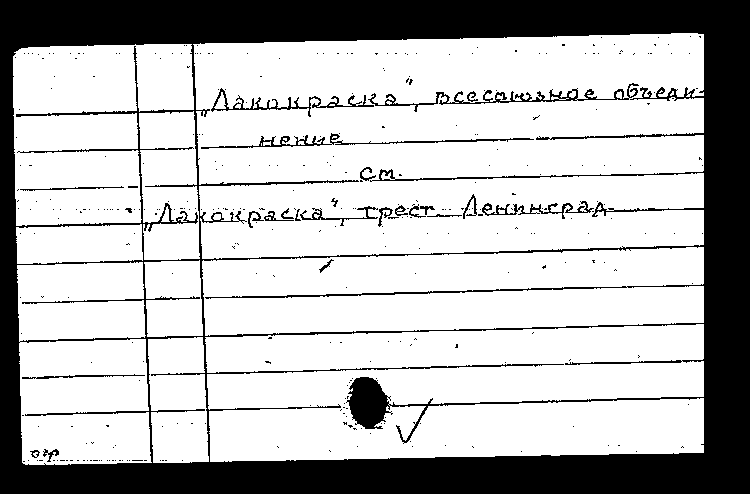 „Лакокраска“, всесоюзное объеди-
нение
см.
„Лакокраска“, трест. Ленинград
огр